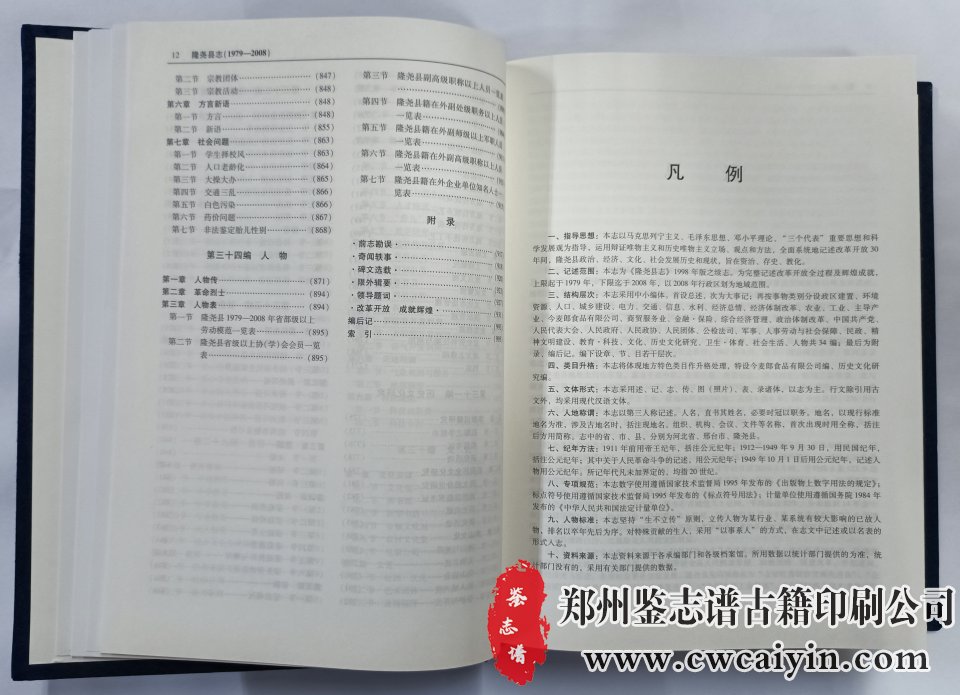 12 隆尧县志(1979—2008)
第二节 宗教团体 (847)
第三节 宗教活动 (848)
第六章 方言新语 (848)
第一节 方言 (848)
第二节 新语 (855)
第七章 社会问题 (863)
第一节 学生择校风 (863)
第二节 人口老龄化 (864)
第三节 大操大办 (865)
第四节 交通三乱 (866)
第五节 白色污染 (866)
第六节 药价问题 (867)
第七节 非法鉴定胎儿性别 (868)
第三十四编 人 物
第一章 人物传 (871)
第二章 革命烈士 (894)
第三章 人物表 (894)
第一节 隆尧县1979—2008年省部级以上
劳动模范一览表 (895)
第二节 隆尧县省级以上协(学)会会员一览
表 (895)
第三节 隆尧县副高级职称以上人员一览
第四节 隆尧县籍在外副处级职务以上人员
一览表
第五节 隆尧县籍在外副师级以上军职人员
一览表
第六节 隆尧县籍在外副高级职称以上人员
一览表
第七节 隆尧县籍在外企业单位知名人士一
览表
附 录
·前志勘误
·奇闻轶事
·碑文选载
·限外辑要
·领导题词
·改革开放 成就辉煌
编后记
索 引
凡 例
一、指导思想：本志以马克思列宁主义、毛泽东思想、邓小平理论、“三个代表”重要思想和科
学发展观为指导，运用辩证唯物主义和历史唯物主义立场、观点和方法，全面系统地记述改革开放30
年间，隆尧县政治、经济、文化、社会发展历史和现状，旨在资治、存史、教化。
二、记述范围：本志为《隆尧县志》1998年版之续志，为完整记述改革开放全过程及辉煌成就，
上限起于1979年，下限迄于2008年，以2008年行政区划为地域范围。
三、结构层次：本志采用中小编体，首设总述，次为大事记；再按事物类别分设政区建置、环境
资源、人口、城乡建设、电力、交通、信息、水利、经济总情、经济体制改革、农业、工业、主导产
业、今麦郎食品有限公司、商贸服务业、金融·保险、综合经济管理、政治体制改革、中国共产党、
人民代表大会、人民政府、人民政协、人民团体、公检法司、军事、人事劳动与社会保障、民政、精
神文明建设、教育·科技、文化、历史文化研究、卫生·体育、社会生活、人物共34编；最后为附
录、编后记。编下设章、节、目若干层次。
四、类目升格：本志将体现地方特色类目作升格处理，特设今麦郎食品有限公司编、历史文化研
究编。
五、文体形式：本志采用述、记、志、传、图（照片）、表、录诸体，以志为主。行文除引用古
文外，均采用现代汉语文体。
六、人地称谓：本志以第三人称记述。人名，直书其姓名，必要时冠以职务。地名，以现行标准
地名为准，涉及古地名时，括注现地名。组织、机构、会议、文件等名称，首次出现时用全称，括注
后方用简称。志中的省、市、县，分别为河北省、邢台市、隆尧县。
七、纪年方法：1911年前用帝王纪年，括注公元纪年；1912—1949年9月30日，用民国纪年，
括注公元纪年；其中关于人民革命斗争的记述，用公元纪年；1949年10月1日后用公元纪年，记述人
物用公元纪年。所记年代凡未加界定的，均指20世纪。
八、专项规范：本志数字使用遵循国家技术监督局1995年发布的《出版物上数字用法的规定》；
标点符号使用遵循国家技术监督局1995年发布的《标点符号用法》；计量单位使用遵循国务院1984年
发布的《中华人民共和国法定计量单位》。
九、人物标准：本志坚持“生不立传”原则，立传人物为某行业、某系统有较大影响的已故人
物，排名以卒年先后为序。对特殊贡献的生人，采用“以事系人”的方式，在志文中记述或以名表的
形式入志。
十、资料来源：本志资料来源于各承编部门和各级档案馆。所用数据以统计部门提供的为准，统
计部门没有的，采用有关部门提供的数据。
鉴志谱
郑州鉴志谱古籍印刷公司
www.cwcaiyin.com